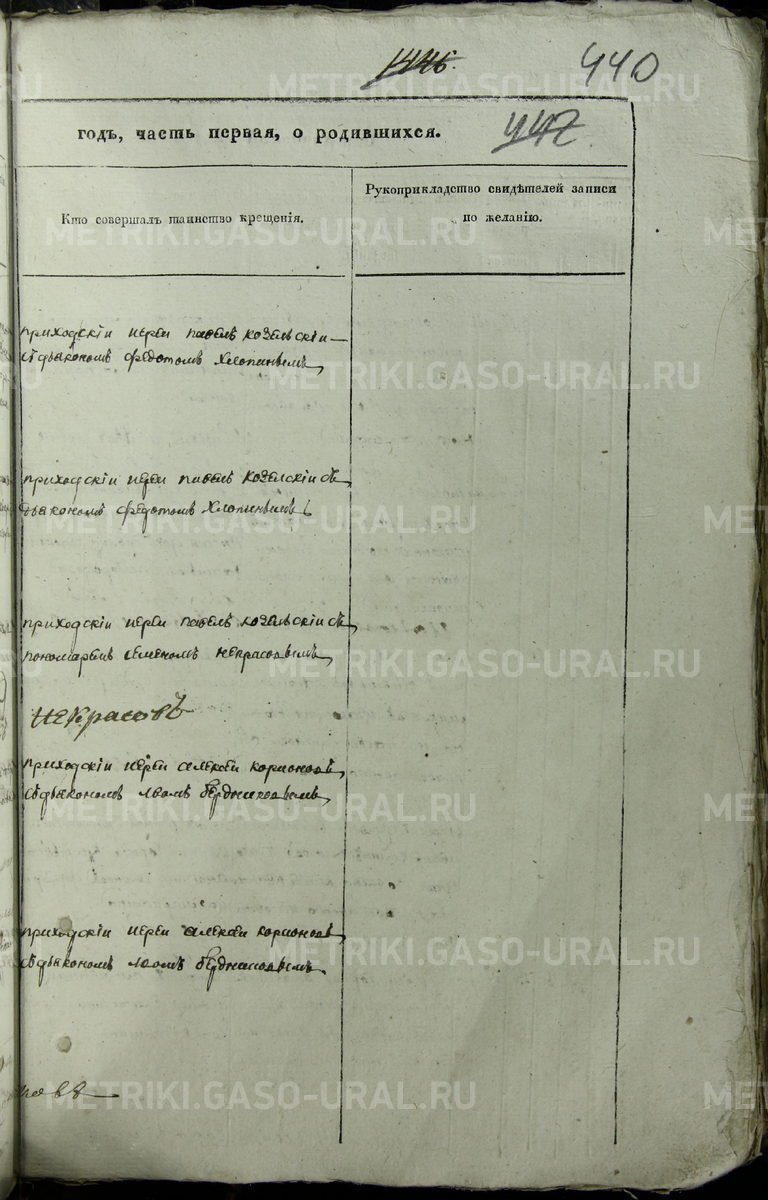 1446.
440
годъ, часть первая, о родившихся.
447
Кто совершалъ таинство крещенія.
Рукоприкладство свидѣтелей записи
по желанію.
приходскіи иереи павелъ козелскіи
съ дьякономъ федотомъ Хлопинымъ
приходскіи иереи павелъ козелскіи съ
дьякономъ федотомъ Хлопинымъ
приходскіи иереи павелъ козелскіи съ
пономаремъ семеномъ некрасовымъ
Некрасовъ
приходскіи иереи алексеи
съ дьякономъ львомъ бердниковымъ
приходскіи иереи алексеи
съ дьякономъ львомъ бердниковымъ
METRIKI.GASO-URAL.RU